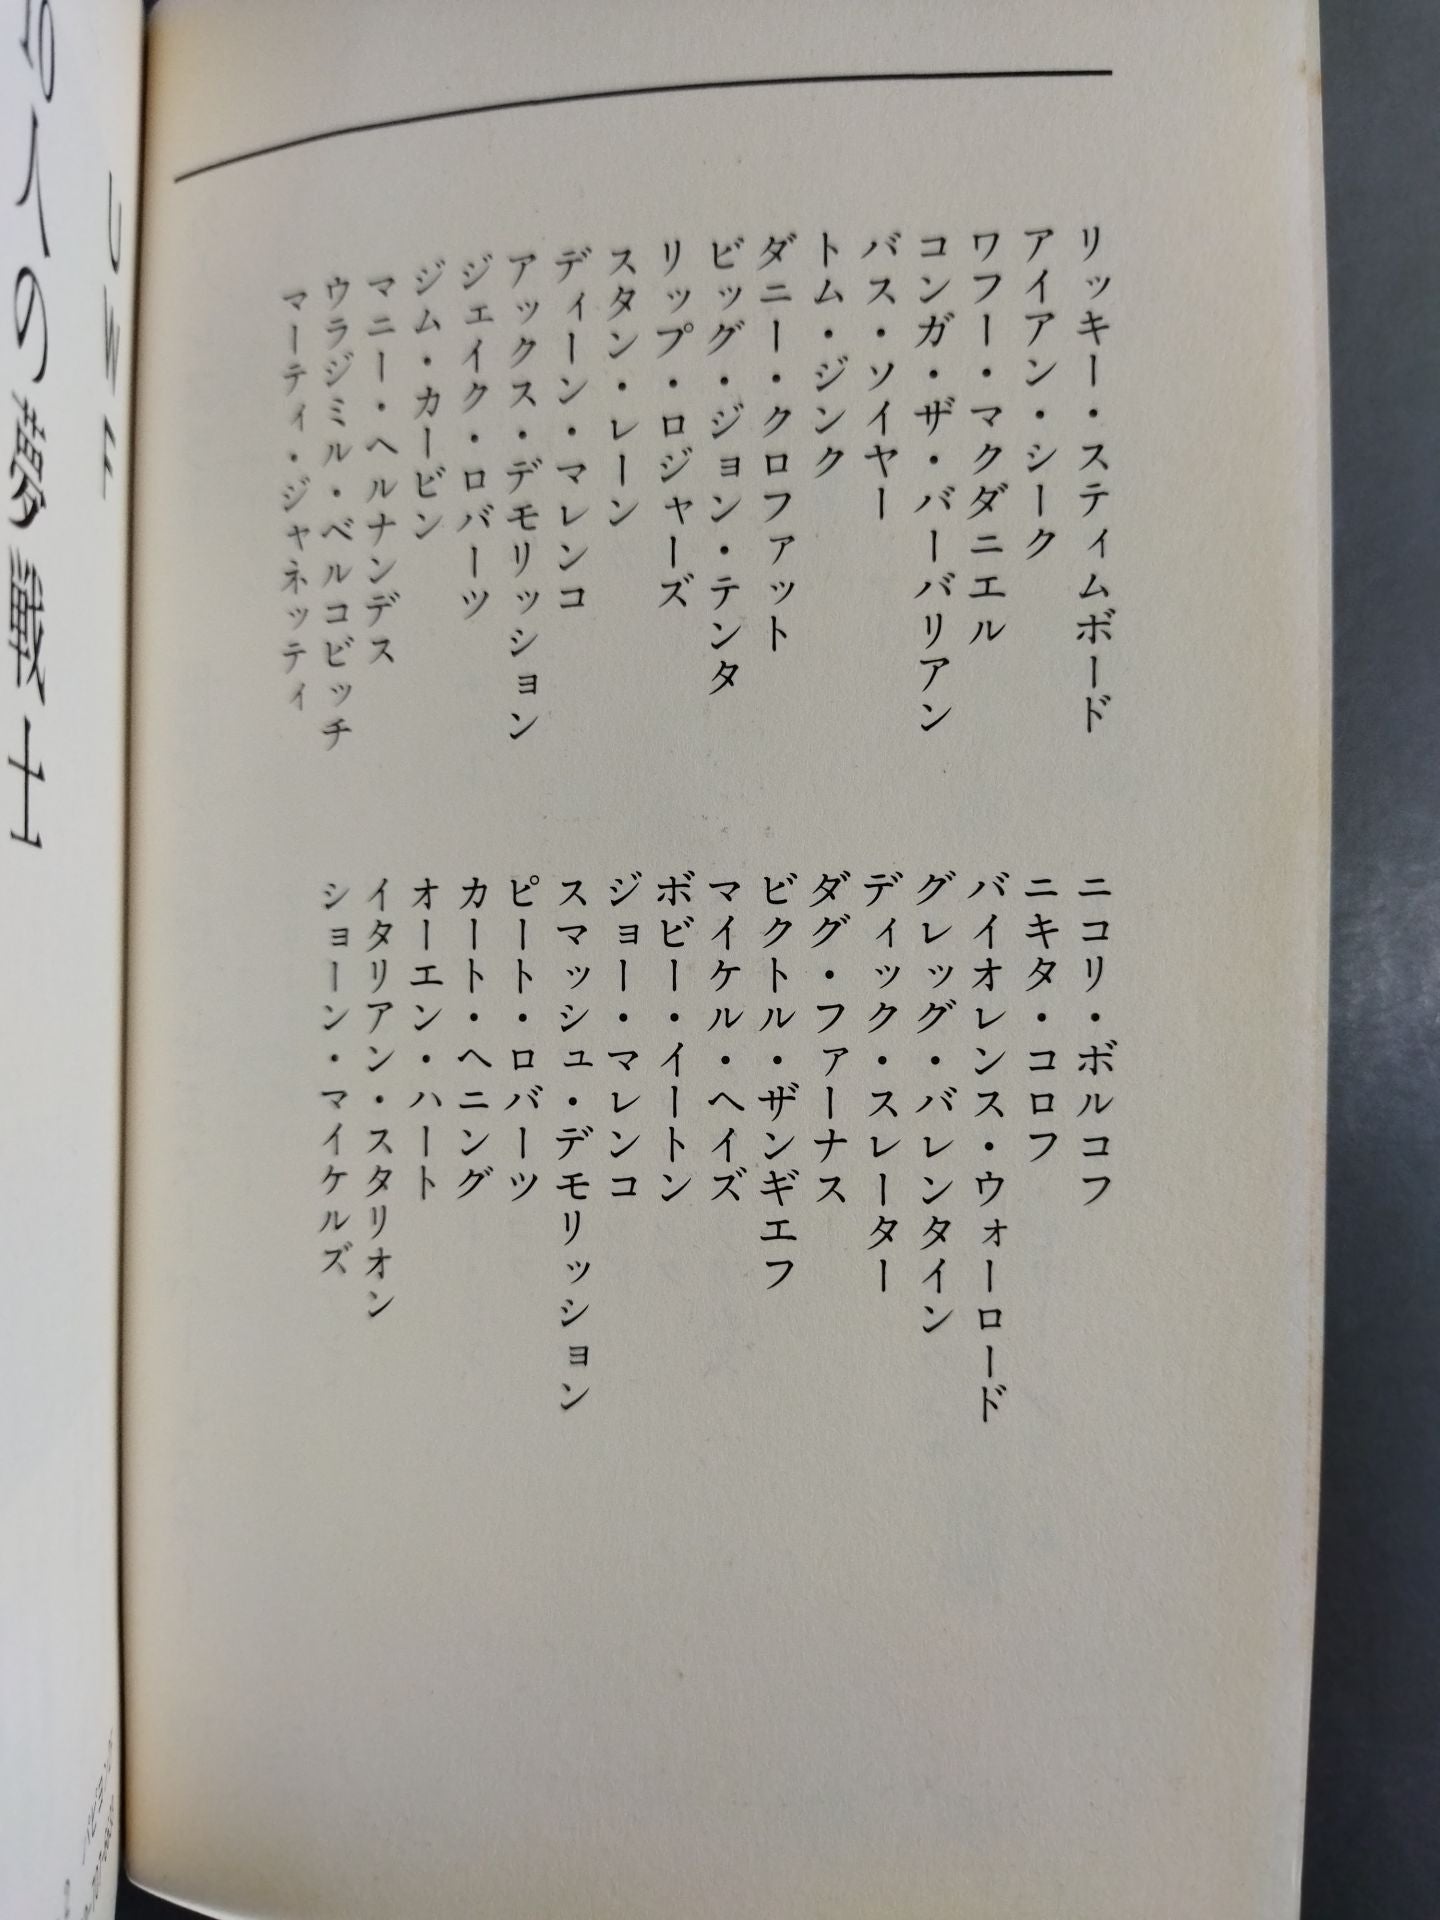 リッキー・スティムボード
アイアン・シーク
ワフー・マクダニエル
コンガ・ザ・バーバリアン
バス・ソイヤー
トム・ジンク
ダニー・クロファット
ビッグ・ジョン・テンタ
リップ・ロジャーズ
スタン・レーン
ディーン・マレンコ
アックス・デモリッション
ジェイク・ロバーツ
ジム・カービン
マニー・ヘルナンデス
ウラジミル・ベルコビッチ
マーティ・ジャネッティ
ニコリ・ボルコフ
ニキタ・コロフ
バイオレンス・ウォーロード
グレッグ・バレンタイン
ディック・スレーター
ダグ・ファーナス
ビクトル・ザンギエフ
マイケル・ヘイズ
ボビー・イートン
ジョー・マレンコ
スマッシュ・デモリッション
ピート・ロバーツ
カート・ヘニング
オーエン・ハート
イタリアン・スタリオン
ショーン・マイケルズ
UWF
10人の夢戦士